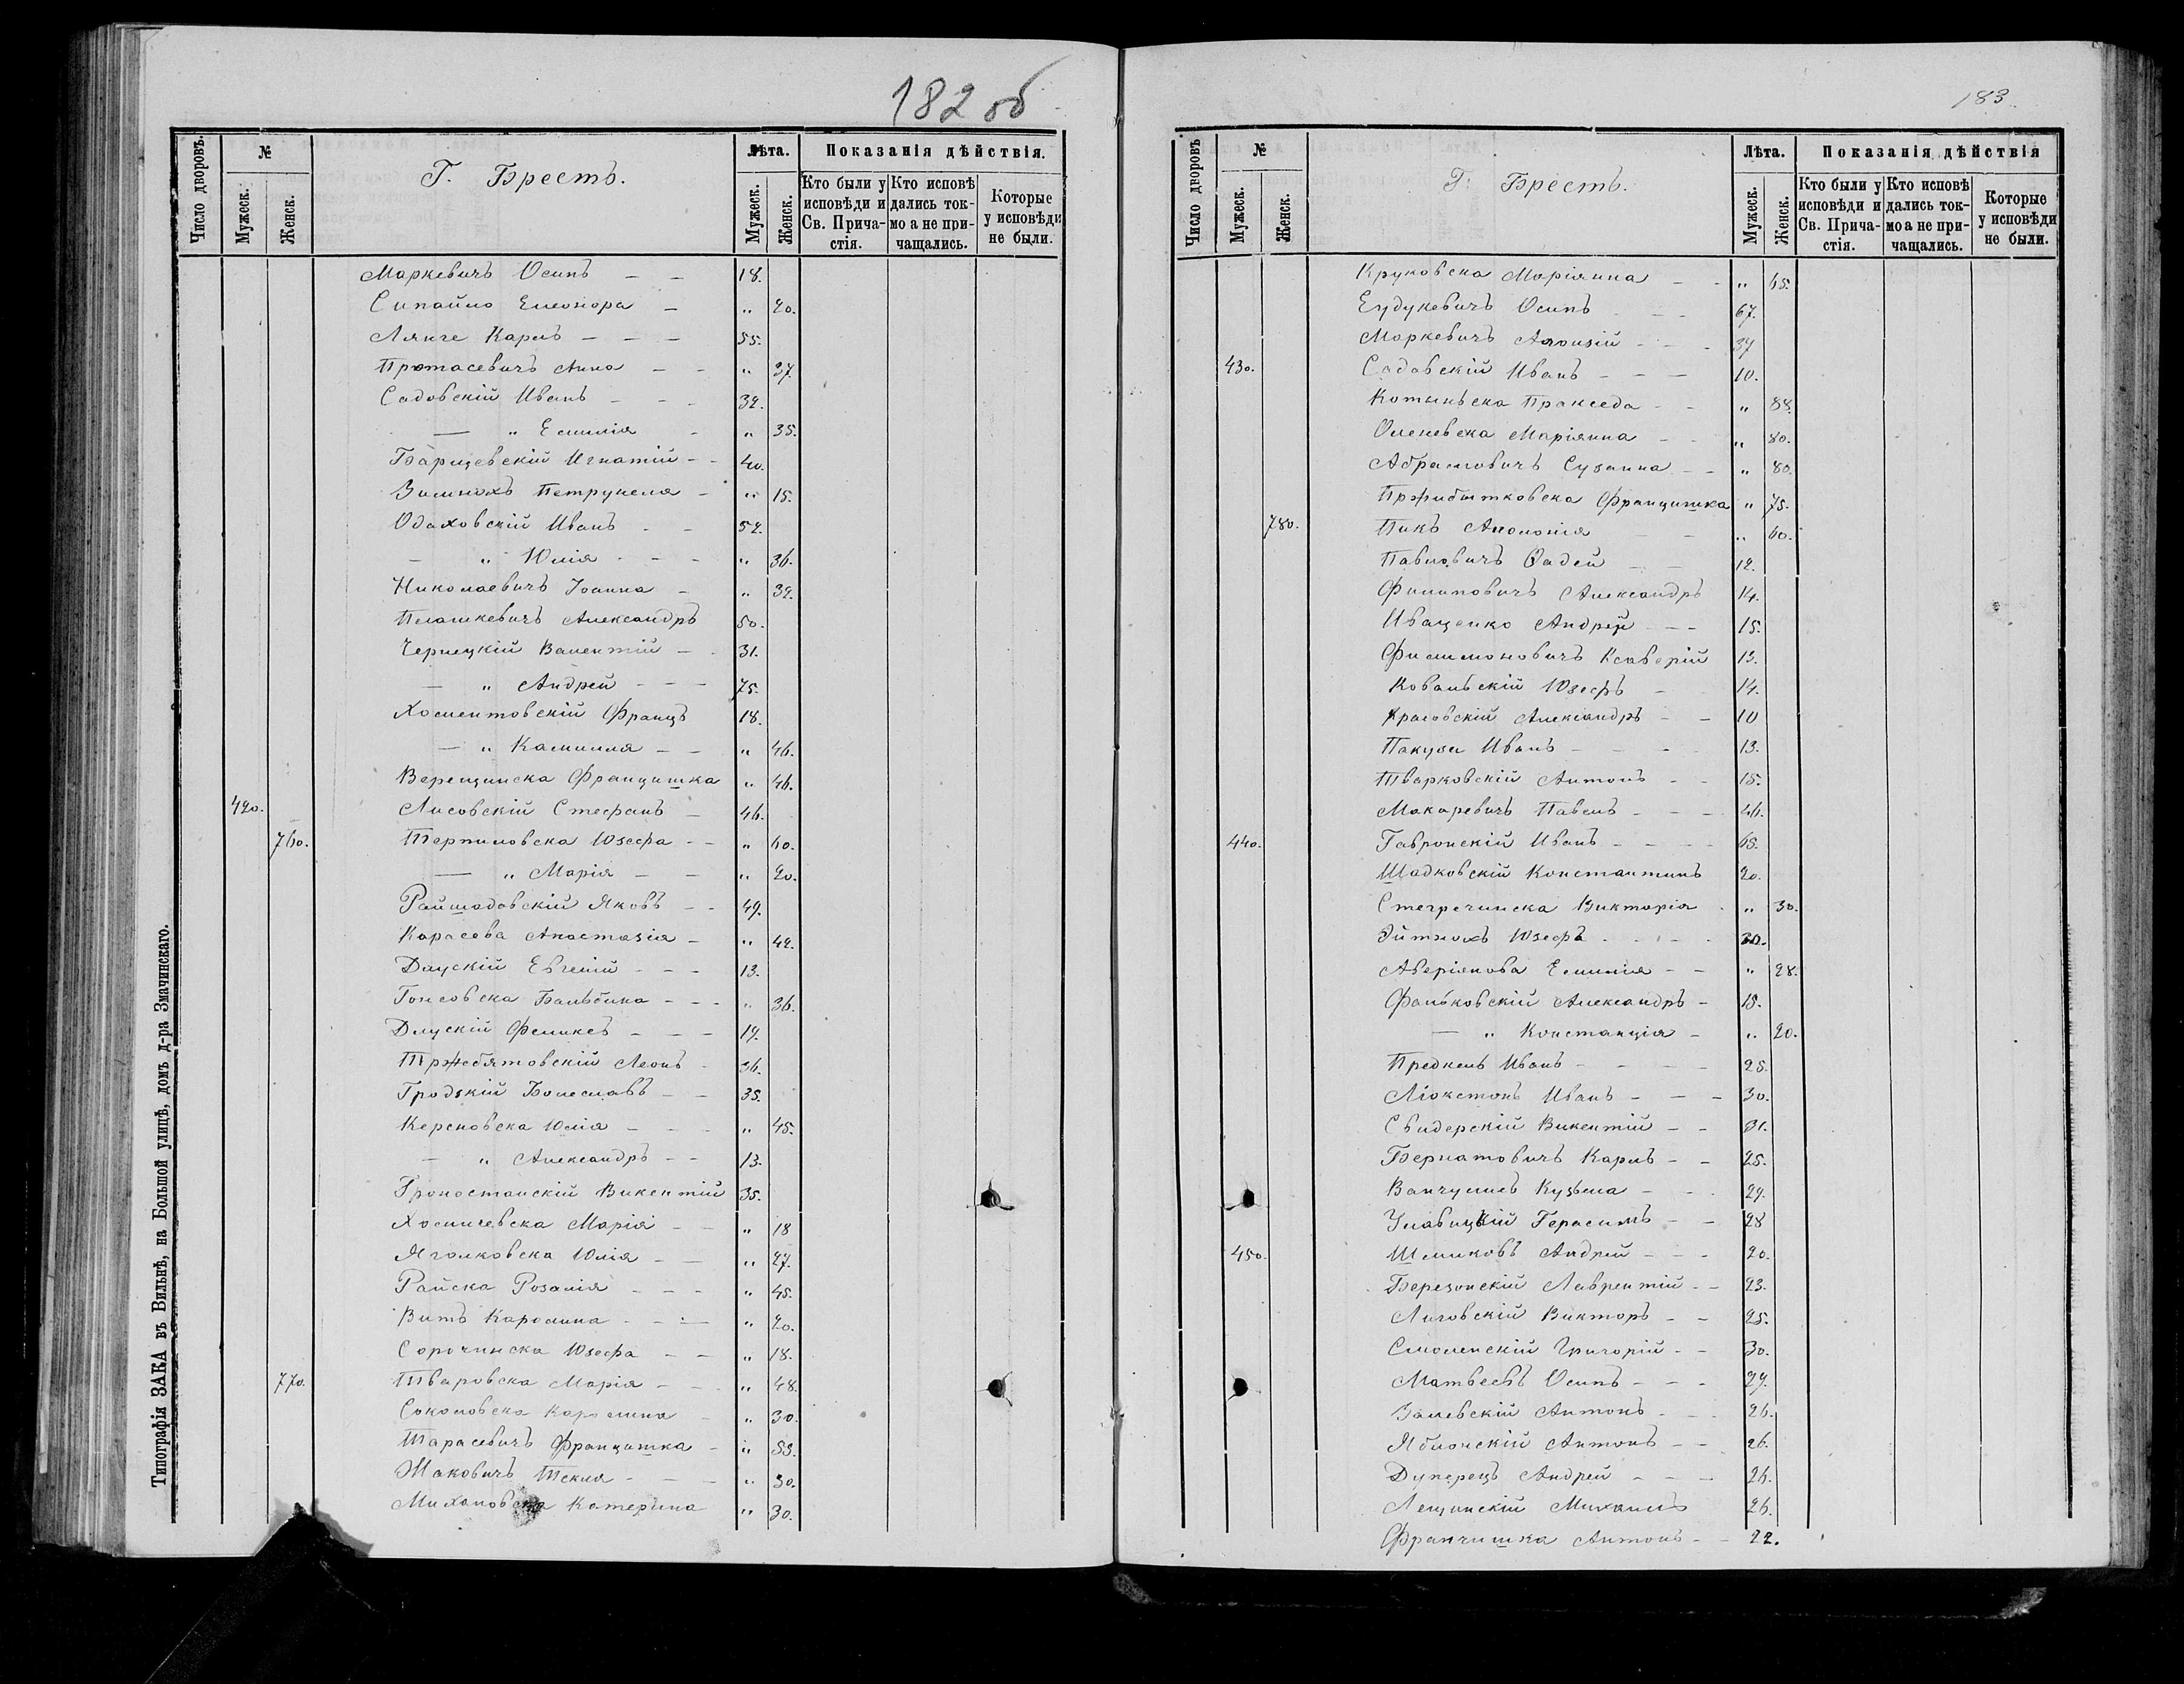 182 об
Число дворовъ.
№
Мужеск.
Женск.
Г. Брестъ.
Лѣта.
Мужеск.
Женск.
Показанія дѣйствія.
Кто были у исповѣди и Св. Прича-стія.
Кто исповѣ дались ток-мо а не при-чащались.
Которые у исповѣди не были.
Маркевичъ Осипъ — — 18.
Сипайло Елеонора — " 20.
Лянге Карлъ — — — 55.
Протасевичъ Анна — — " 37.
Садовскій Иванъ — — — 32.
— " Емилія — " 35.
Барщевскій Игнатій — — 40.
Зимнохъ Петрунеля — " 15.
Одаховскій Иванъ — — 52.
— " Юлія — — — " 36.
Николаевичъ Іоанна — " 32.
Плашкевичъ Александръ 50.
Чернецкій Валентій — 31.
— " Андрей — — — 75.
Хоментовскій Францъ 18.
— " Камилля — — " 46.
Верещинска Францишка " 46.
420. Лисовскій Стефанъ — 46.
760. Терпиловска Юзефа — — " 60.
— " Марія — — " 20.
Райшадовскій Яковъ — — 49.
Карасева Анастазія — " 42.
Длускій Евгеній — — — 13.
Гонсовска Бальбина — — — " 36.
Длускій Феликсъ — — — 19.
Тржебятовскій Леонъ — 36.
Гродзкій Болеславъ — — 35.
Керсновска Юлія — — — " 45.
— " Александръ — — 13.
Гроностайскій Викентій 35.
Хоми­чевска Марія — — " 18
Яголковска Юлія — — " 27.
Райска Розалія — — — " 45.
Витъ Каролина — — — " 20.
Сорочинска Юзефа — — " 18.
770. Тваровска Марія — — " 48.
Соколовска Каролина — " 30.
Тарасевичъ Францишка — " 55.
Жаковичъ Текля — — — " 30.
Катерина " 30.
Типографія ЗАКА въ Вильнѣ, на Большой улицѣ, домъ д-ра Змачинскаго.
183.
Число дворовъ
№
Мужеск.
Женск.
Г. Брестъ.
Лѣта.
Мужеск.
Женск.
Показанія дѣйствія
Кто были у исповѣди и Св. Прича-стія.
Кто исповѣ дались ток-мо а не при-чащались.
Которые у исповѣди не были.
Круковска Маріянна — — " 65.
Осипъ — — 67.
Маркевичъ Алоизій — — — 37
430. Садовскій Иванъ — — — 10.
Котыньска Пракседа — — " 88.
Оленевска Маріянна — — " 80.
Абрамовичъ Сузанна — — " 80.
Пржибытковска Францишка " 75.
780. Пикъ Аполонія — — " 60.
Павловичъ Фадей — — 12.
Филиповичъ Александръ 14.
Иващенко Андрей — — — 15.
Филимоновичъ Ксаверій 13.
Ковальскій Юзефъ — 14.
Красовскій Александръ — — 10
Иванъ — — — 13.
Тварковскій Антонъ — — 15.
Макаревичъ Павелъ — — — 46.
440. Гавронскій Иванъ — — — — 65.
Шадковскій Константинъ 20.
Викторія — " 30.
Юзефъ — — — — 30.
Аверіянова Емилія — — " 28.
Фальковскій Александръ — 15.
— " Констанція — " 20.
Предкель Иванъ — — — — 25.
Люкстонъ Иванъ — — — 30.
Свидерскій Викентій — — 31.
Бернатовичъ Карлъ — — 25.
Кузьма — — 29.
Герасимъ — — 28
450. Шмиковъ Андрей — — — 20.
Березонскій Лаврентій — — 23.
Викторъ — — 25.
Смоленскій Григорій — — 30.
Матвеевъ Осипъ — — — 29.
Залевскій Антонъ — — 26.
Яблонскій Антонъ — — 26.
Андрей — — — 26.
Лещинскій Михаилъ 26.
Франчишка Антонъ — — 22.